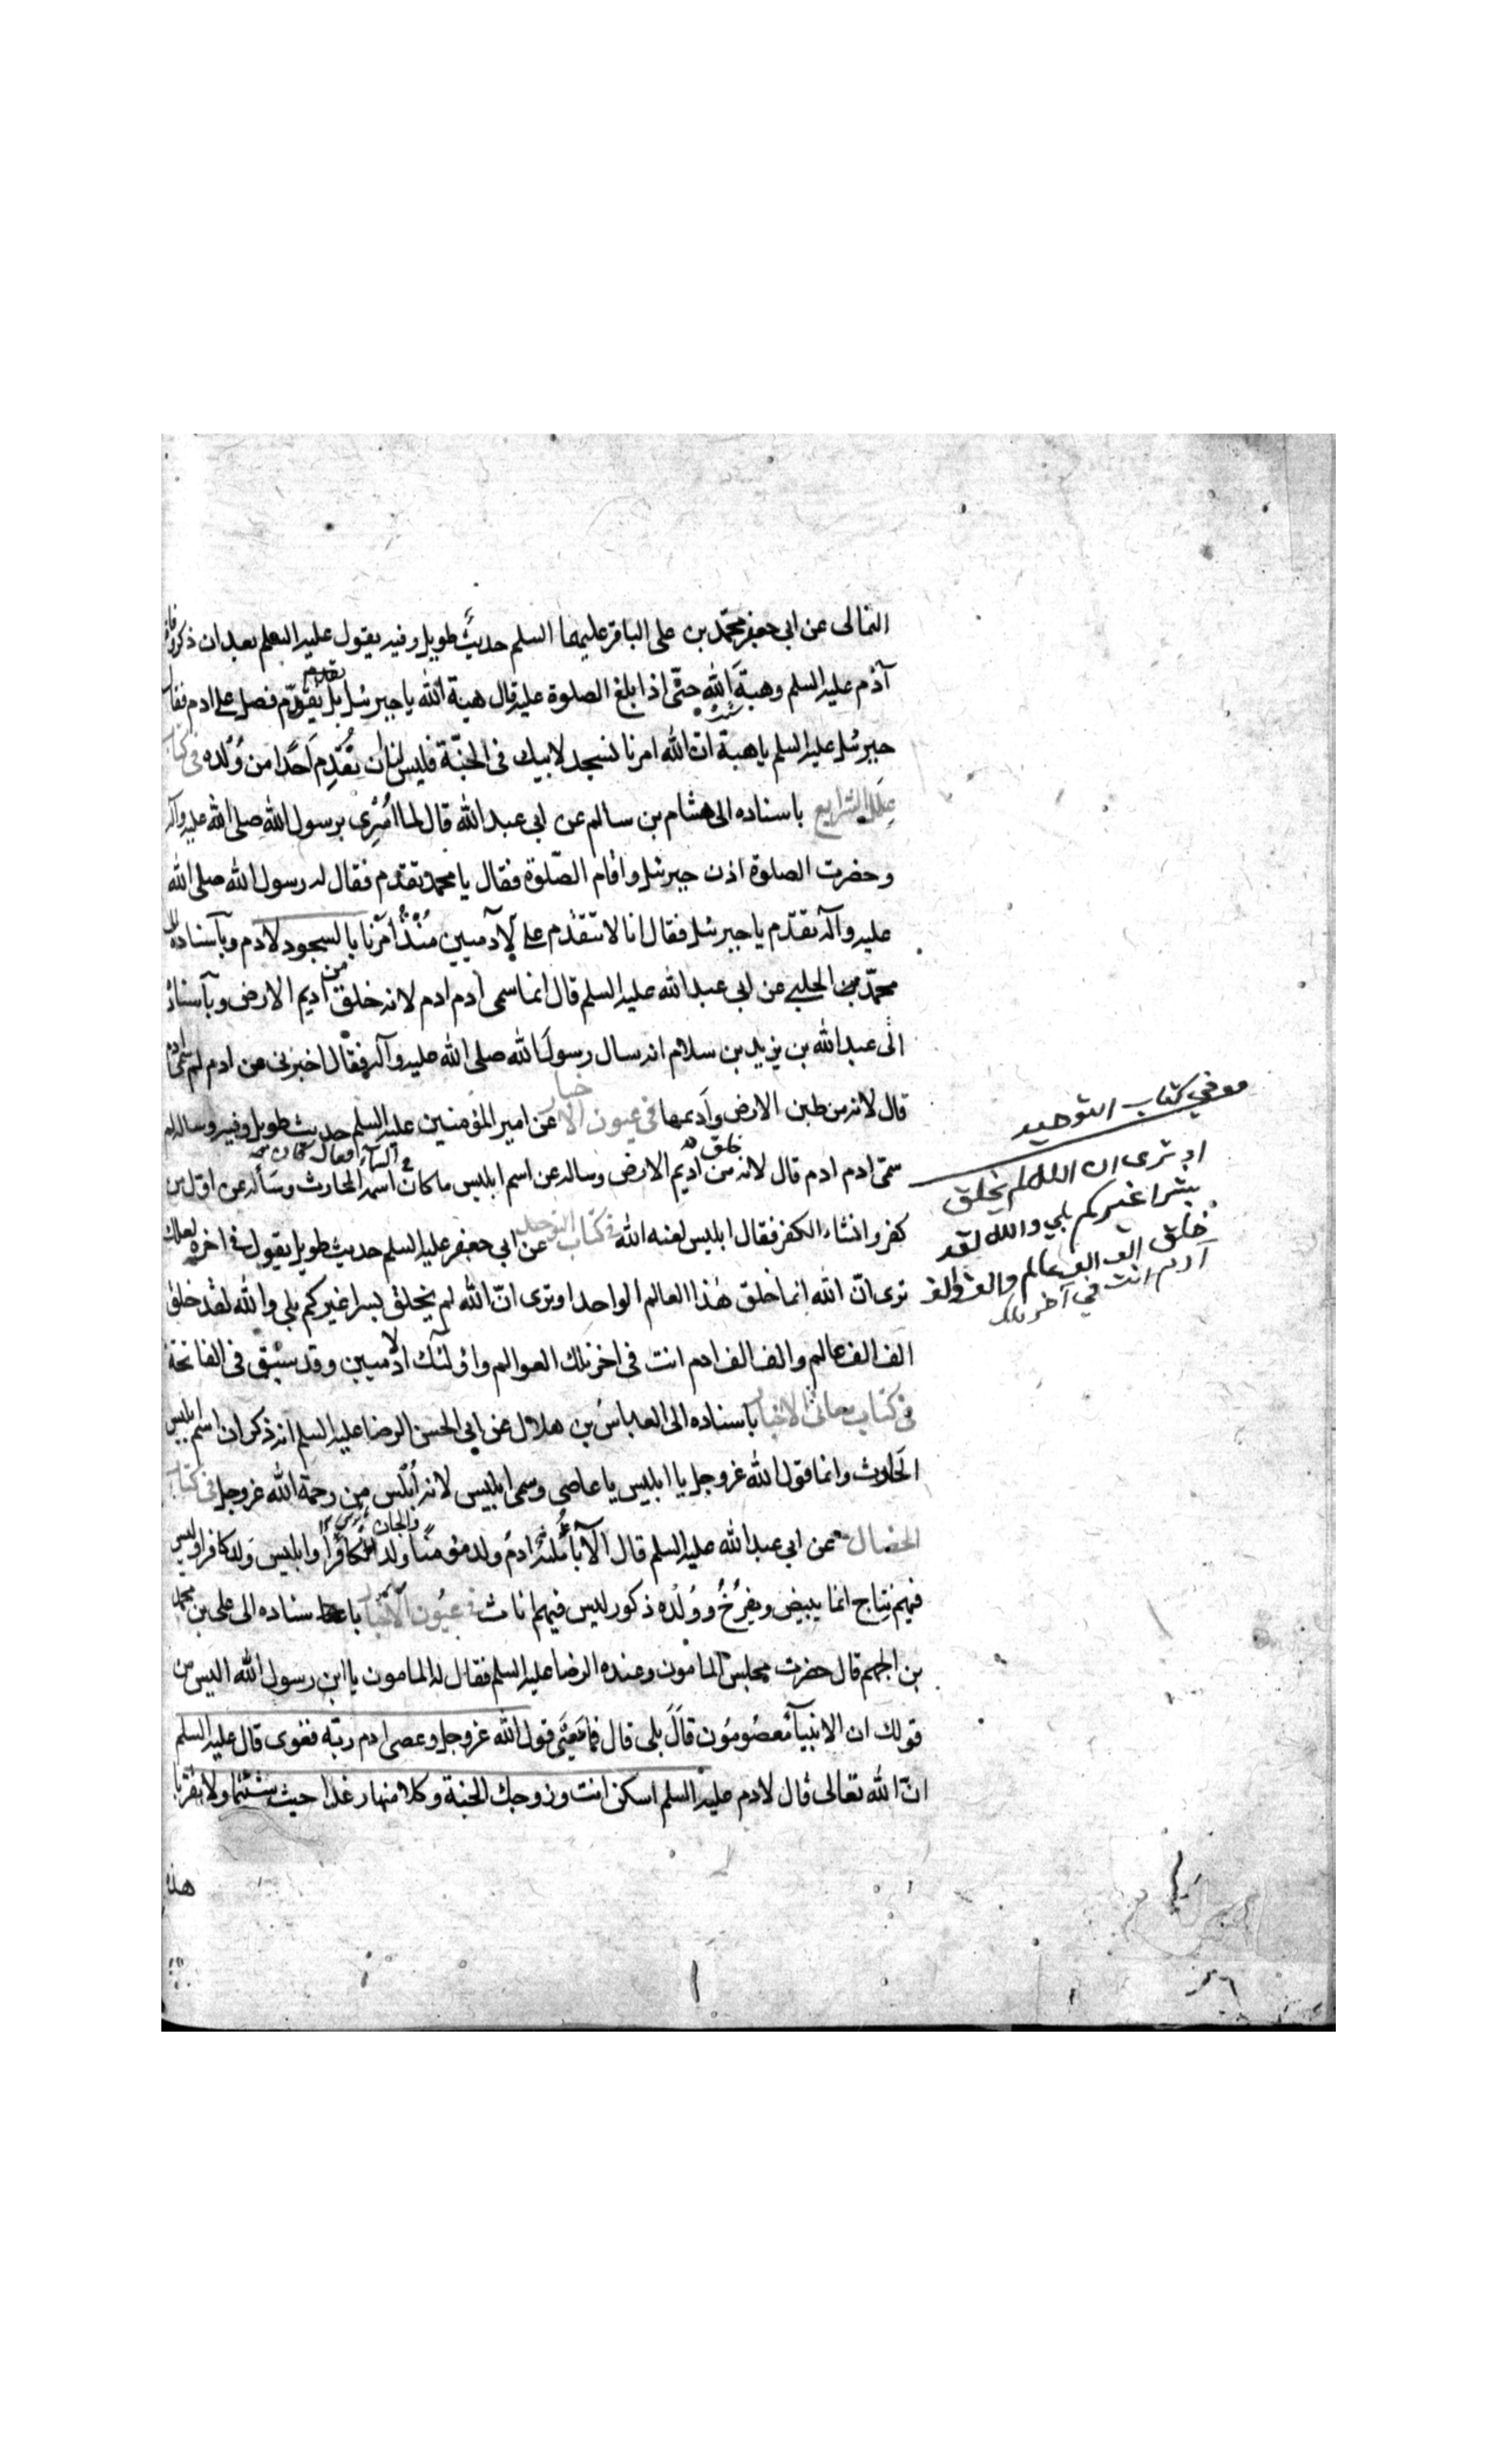 الثمالى عن ابى جعفر محمّد بن على الباقر عليهما السلم حديث طويل وفيه يقول عليه السلم بعد ان ذكر وفاة
آدم عليه السلم وهبة الله حتّى اذا بلغ الصلوة عليه قال هبة الله يا جبرئيل تقدّم فصل على ادم فقال
جبرئيل عليه السلم يا هبة الله ان الله امرنا نسجد لابيك فى الجنّة فليس لنا ان نتقدّم احدًا من وُلده فى كتاب
علل الشرايع باسناده الى هشام بن سالم عن ابى عبد الله قال لما اُسْرِى برسول الله صلى الله عليه وآله
وحضرت الصلوة اذن جبرئيل واقام الصّلوة فقال يا محمد تقدم فقال له رسول الله صلى الله
عليه وآله تقدّم يا جبرئيل فقال انا لا نتقدّم على الآدميين مُنْذُ اُمرْنا بالسجود لادم وباسناده الى
محمّد بن الحلبى عن ابى عبد الله عليه السلم قال انما سمى ادم ادم لانه خلق من اديم الارض وباسناده
الى عبد الله بن يزيد بن سلام انه سال رسول الله صلى الله عليه وآله فقال اخبرنى عن ادم لم سمّى ادم
قال لانه من طين الارض وأديمها فى عيون الاخبار عن امير المؤمنين عليه السلم حديث طويل وفيه وساله لم
سمّى ادم ادم قال لانه خلق من اديم الارض وساله عن اسم ابليس ما كان فى السماء فقال كان اسمه الحارث وسأله عن اول من
كفر وانشاء الكفر فقال ابليس لعنه الله فى كتاب التوحيد عن ابى جعفر عليه السلم حديث طويل يقول فى اخره لعلك
ترى انّ الله انما خلق هذا العالم الواحد او ترى انّ الله لم يخلق بشرا غيركم بلى والله لقد خلق
الف الف عالم والف الف ادم انت فى اخر تلك العوالم واولئك الادميين وقد سبق فى الفاتحة
فى كتاب معانى الاخبار باسناده الى العباس بن هلال عن ابى الحسن الرضا عليه السلم انه ذكر ان اسم ابليس
الحارث وانما قول الله عزوجل يا ابليس يا عاصى وسمى ابليس لانه اُبلس من رحمة الله عزوجل فى كتاب
الخصال عن ابى عبد الله عليه السلم قال الآباء ثلثة ادم ولد مؤمنًا والجان ولد كافرًا وابليس ولد كافرا وليس
فيهم نتاج انما يبيض ويفرُخُ ووُلْدُه ذكور ليس فيهم اناث فى عيون الاخبار باسناده الى على بن محمد
بن الجهم قال حضرت مجلس المامون وعنده الرضا عليه السلم فقال له المامون يا ابن رسول الله اليس من
قولك ان الانبيآء معصومُون قال بلى قال فما معنى قول الله عزوجل وعصى ادم ربّه فغوى قال عليه السلم
انّ الله تعالى قال لادم عليه السلم اسكن انت وزوجك الجنة وكلا منها رغدا حيث شئتما ولا تقربا
هذه
وفي كتاب التوحيد
او ترى ان الله لم يخلق
بشرا غيركم بلي والله لقد
خلق الف الف عالم والف الف
آدم انت في آخر تلك
٢٦